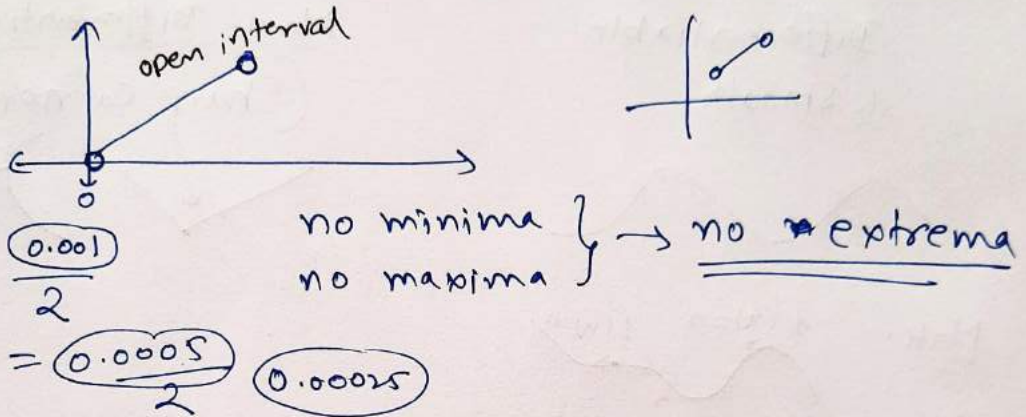 open interval
0
0.001
2
no minima
no maxima
} → no extrema
= 0.0005
2
0.00025